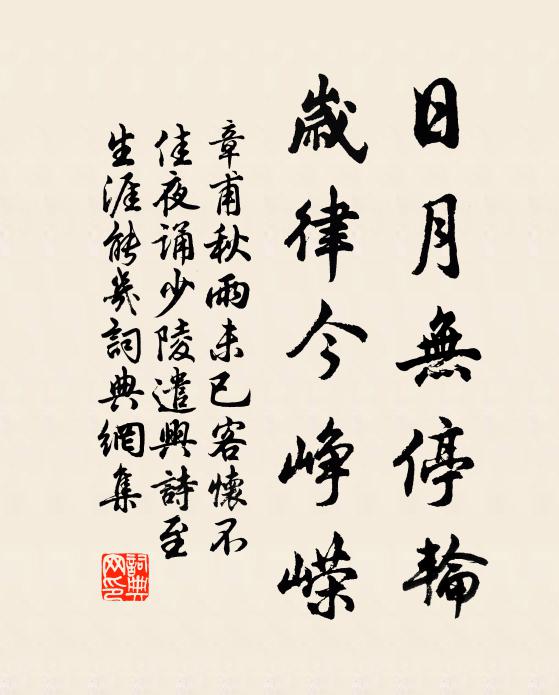 日月無停輪
歲律今崢嶸
章甫秋雨未已客懷不
佳夜誦少陵遣興詩至
生涯能幾詞典網集
詞典网印